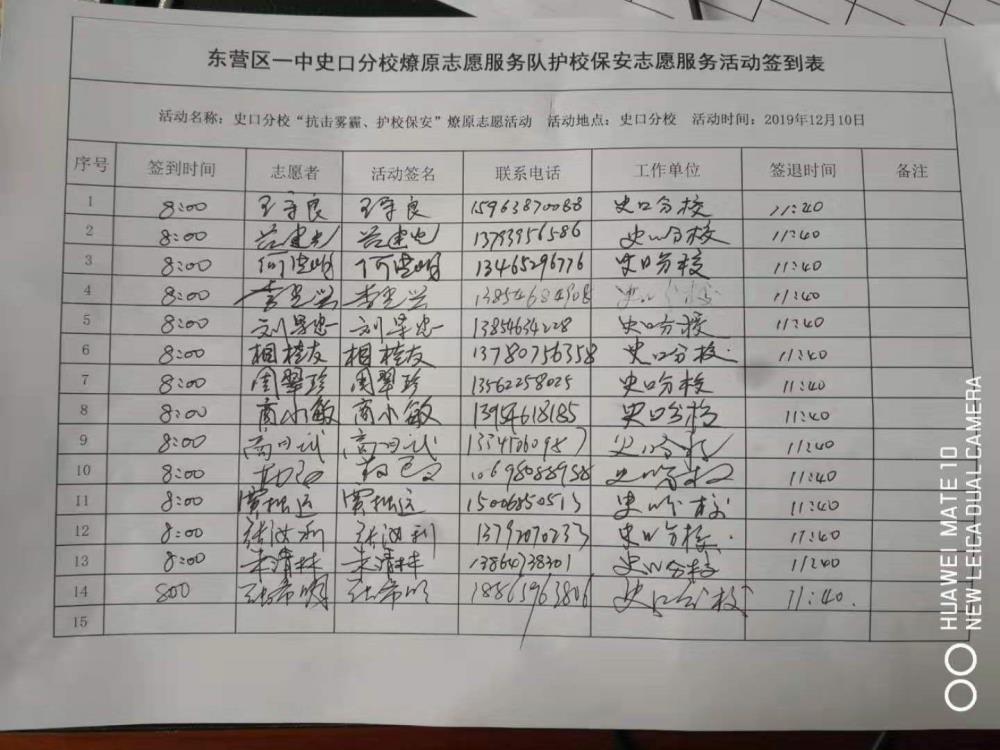 东营区一中史口分校燎原志愿服务队护校保安志愿服务活动签到表
活动名称：史口分校“抗击雾霾、护校保安”燎原志愿活动 活动地点：史口分校 活动时间：2019年12月10日
序号 签到时间 志愿者 活动签名 联系电话 工作单位 签退时间 备注
1 8:00 王守良 王守良 15963870088 史口分校 11:40
2 8:00 13793956586 史口分校 11:40
3 8:00 13465296776 史口分校 11:40
4 8:00 13854684908 史口分校 11:40
5 8:00 13854634228 史口分校 11:40
6 8:00 相桂友 相桂友 13780756358 史口分校 11:40
7 8:00 周翠珍 周翠珍 13562258025 史口分校 11:40
8 8:00 商小敏 商小敏 13954618185 史口分校 11:40
9 8:00 史口分校 11:40
10 8:00 史口分校 11:40
11 8:00 15006850513 史口分校 11:40
12 8:00 张汝利 张汝利 13792070233 史口分校 17:40
13 8:00 朱清林 朱清林 13864738301 史口分校 11:40
14 800 张希明 张希明 18865963806 史口分校 11:40
15
HUAWEI MATE 10
NEW LEICA DUAL CAMERA